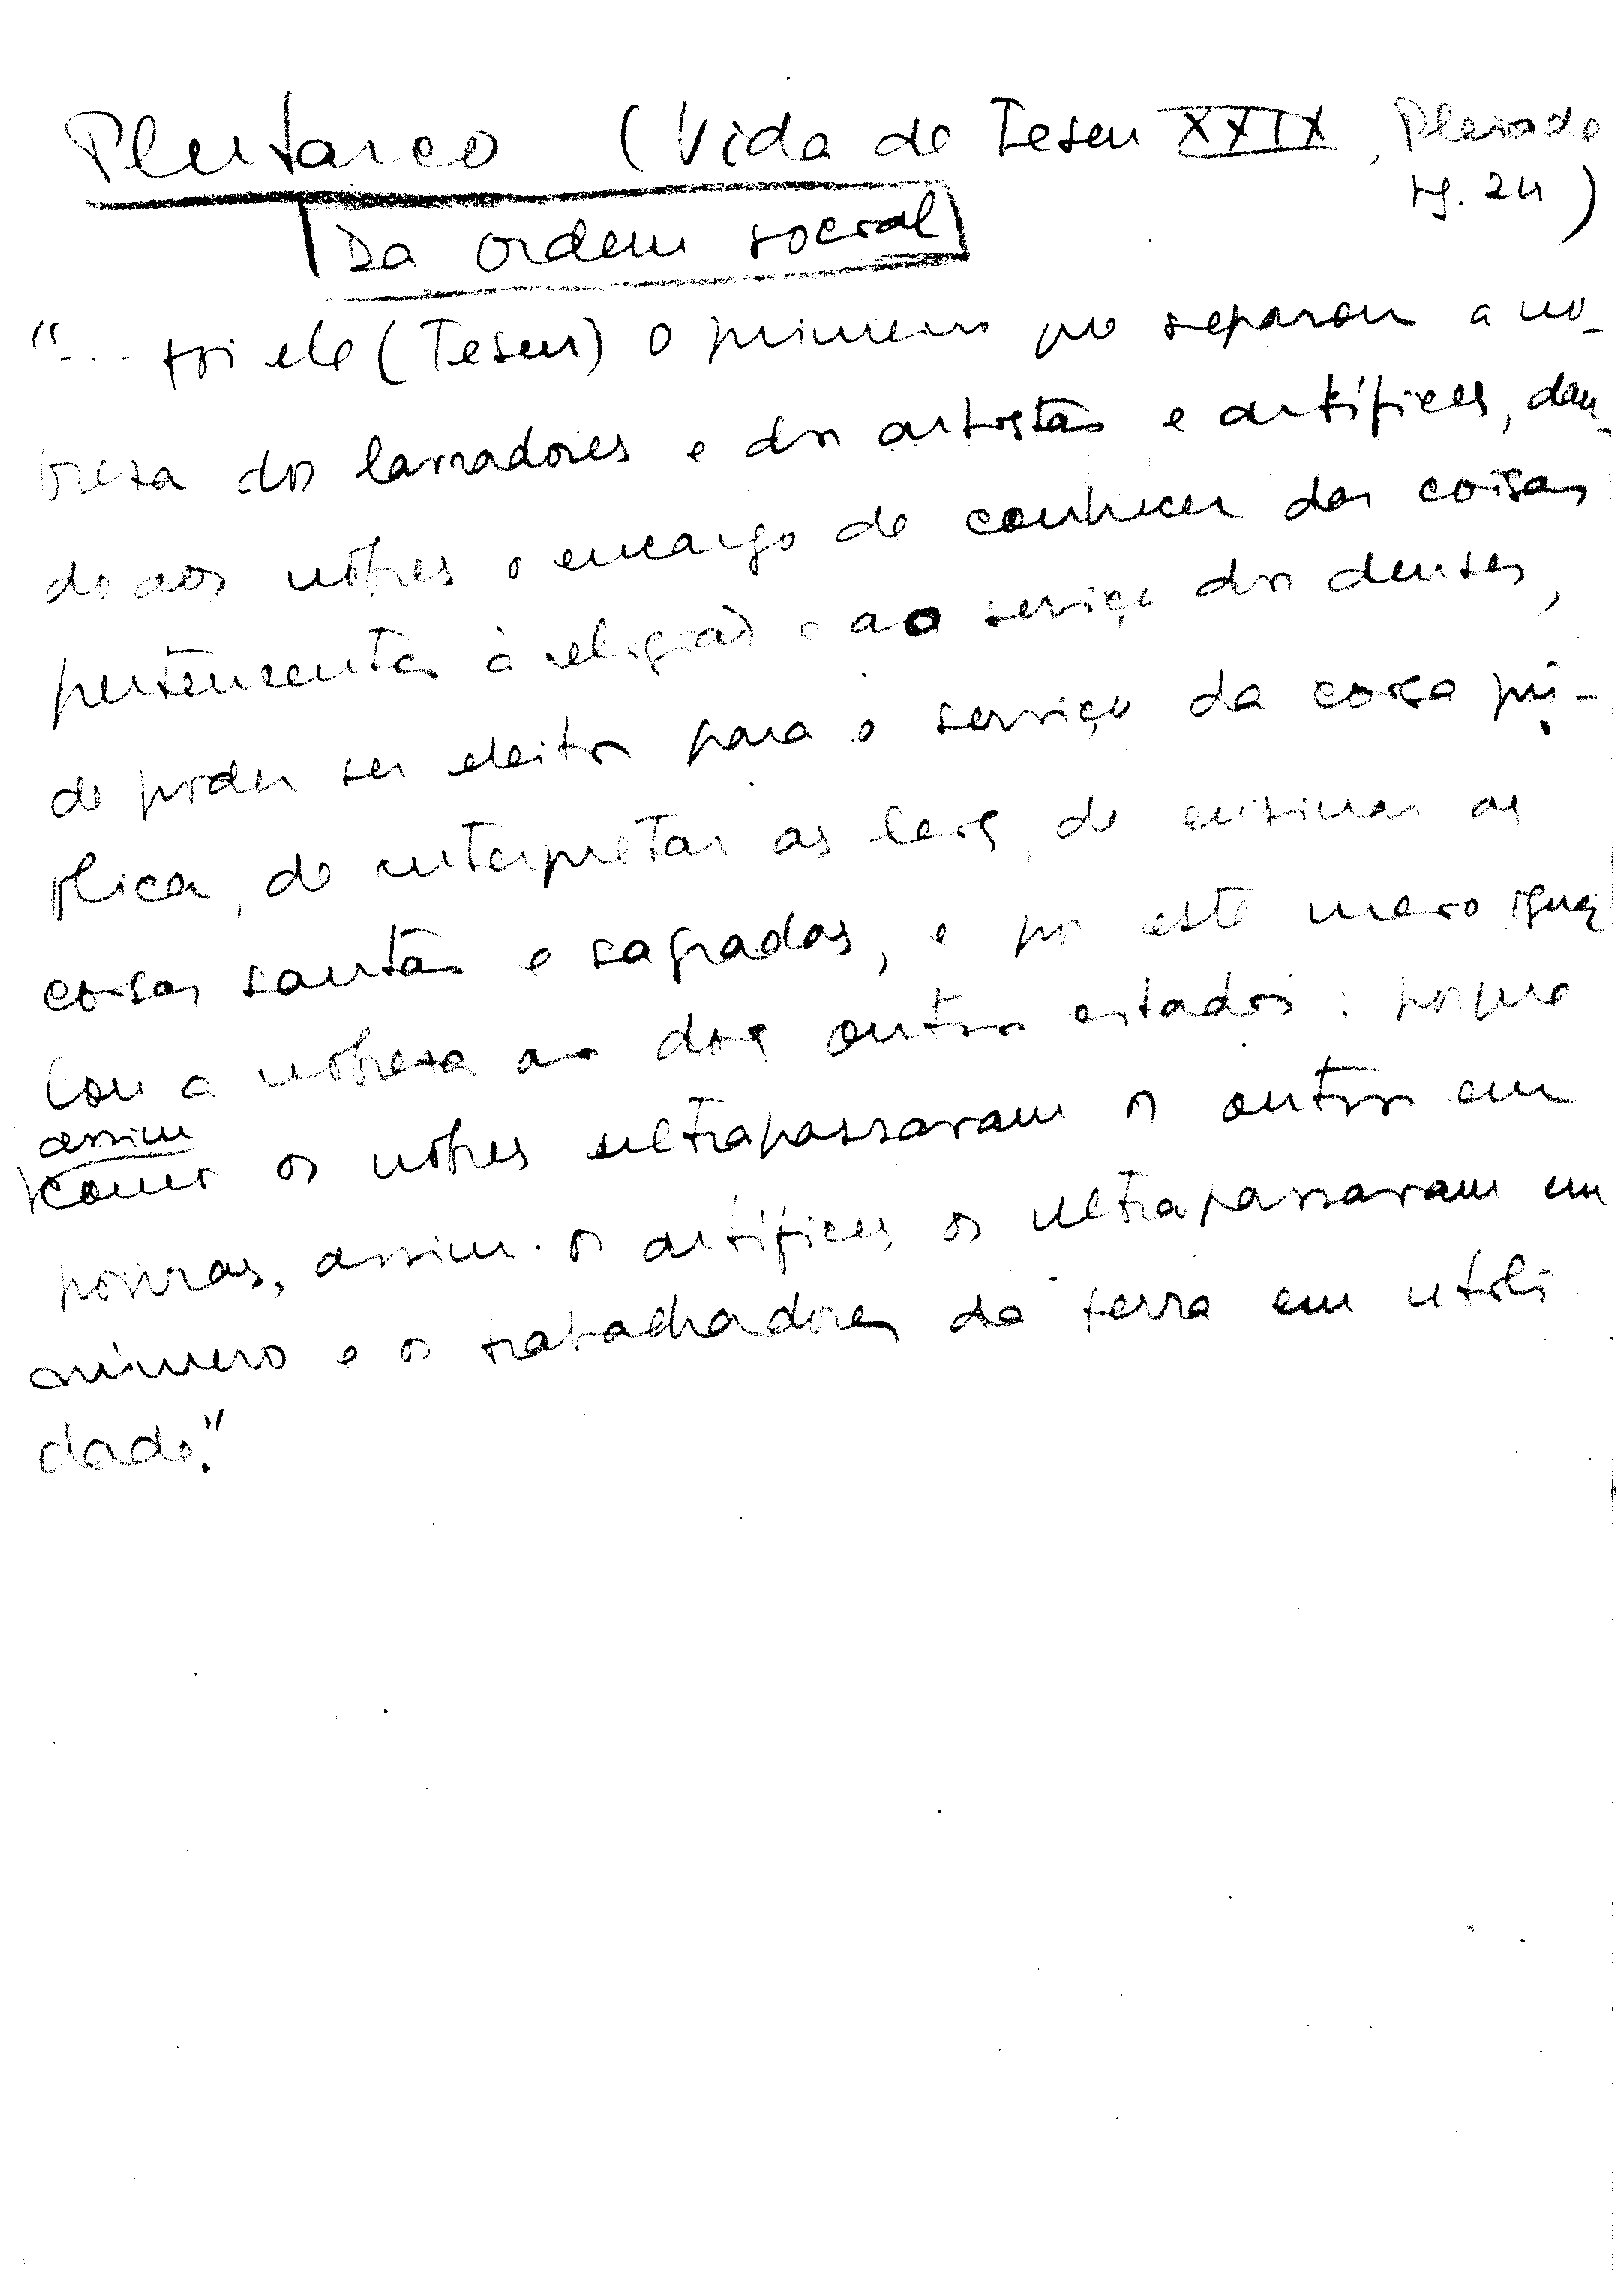 Plutarco (Vida de Teseu XXIX, Pleiade
pg. 24)
Da ordem social
"... foi ele (Teseu) o primeiro que separou a no-
breza dos lavradores e dos artistas e artífices, dan-
do aos nobres o encargo de conhecer das coisas
pertencentes à religião e ao serviço dos deuses,
de poder ser eleitos para o serviço da coisa pú-
blica, de interpretar as leis, de ensinar as
coisas santas e sagradas, e por este meio igua
lou a nobreza ao dos outros estados: porque
assim
como os nobres ultrapassavam os outros em
honras, assim os artífices os ultrapassavam em
número e os trabalhadores da terra em utili
dade."